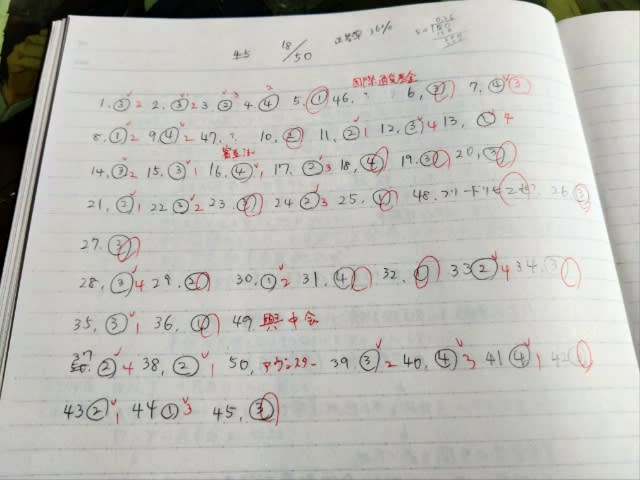 45 18/50 正答率 36%
国際通貨基金
1. ③ 2 2. ③ 2 3. ③ 3 4. ④ 2 5. ① 46. ? 6. ③ 7. ④ ③
8. ① 2 9 ④ 2 47. ? 10. ② 11. ② 1 12. ③ 4 13. ① 4
14. ③ 2 15. ③ 1 16. ④ 1 17. ② 3 18. ④ 19. ③ 20. ③
21. ② 1 22 ③ 2 23 ③ 24 ② 3 25. ① 48. 26. ③
27. ③
28. ③ 4 29. ② 30. ① 2 31. ④ 32. ① 33 ② 4 34. ③
35. ③ 1 36. ① 49 興中会
37 ② 4 38, ② 1 50, 39 ③ 2 40, ④ 3 41 ④ 1 42 ①
43 ② 1 44 ① 3 45. ③